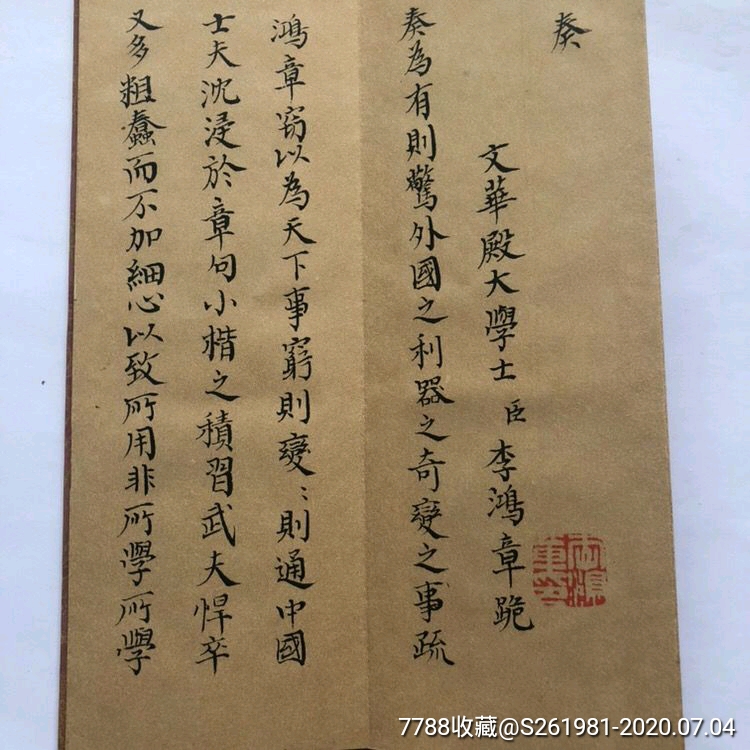 奏
文華殿大學士臣李鴻章跪
奏為有則驚外國之利器之奇變之事疏
鴻章窃以為天下事窮則變〻則通中國
士夫沈浸於章句小楷之積習武夫悍卒
又多粗蠢而不加細心以致所用非所學所學
7788收藏@S261981-2020.07.04